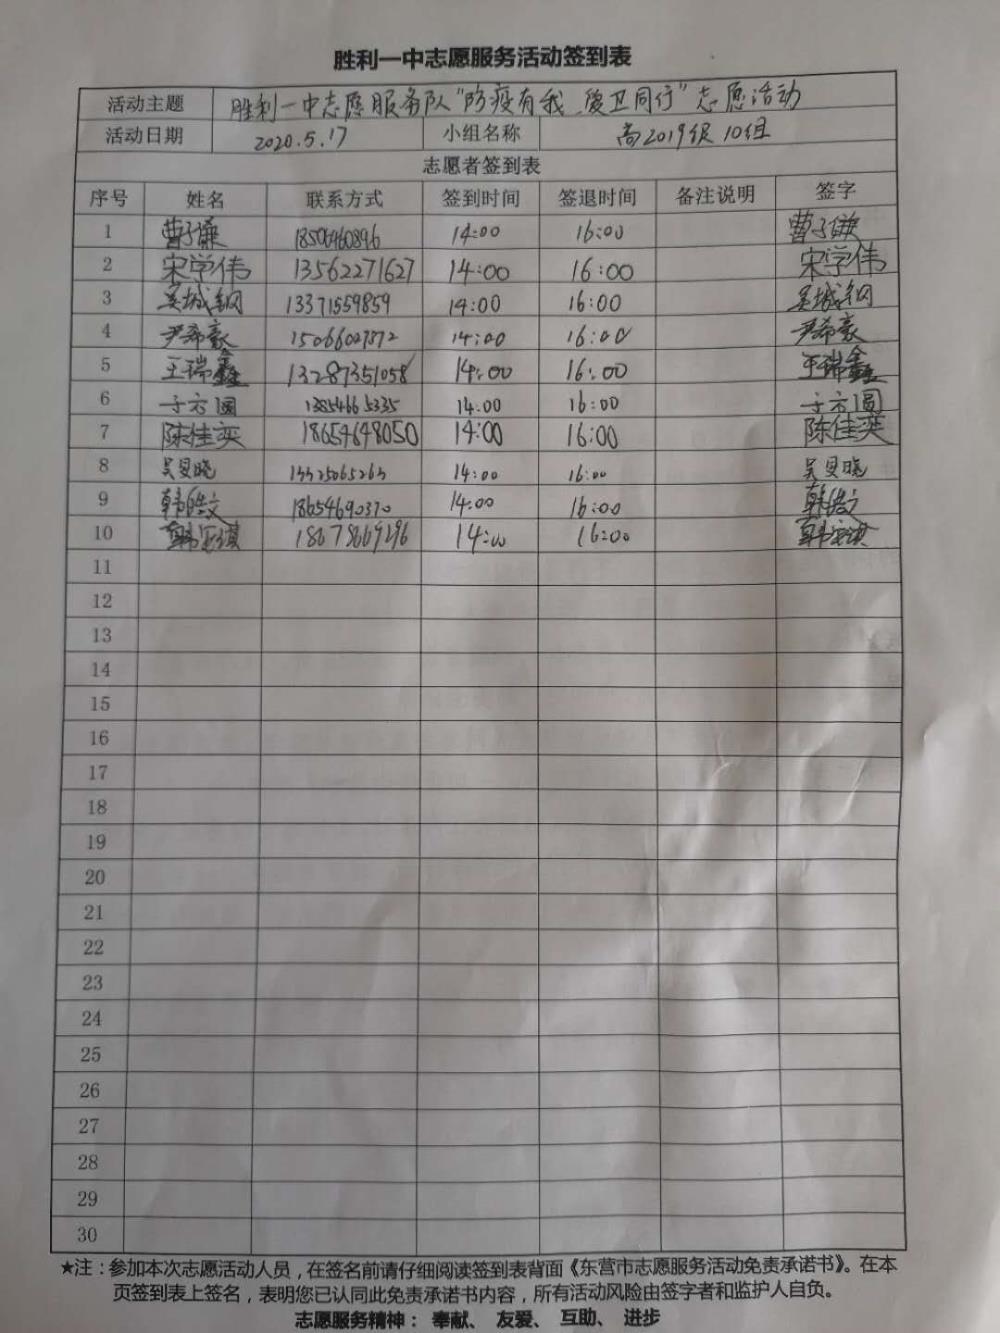 胜利一中志愿服务活动签到表
活动主题 胜利一中志愿服务队"防疫有我、爱卫同行"志愿活动
活动日期 2020.5.17 小组名称 高2019级10组
志愿者签到表
序号 姓名 联系方式 签到时间 签退时间 备注说明 签字
1 曹子谦 18506460896 14:00 16:00 曹子谦
2 宋学伟 13562271627 14:00 16:00 宋学伟
3 吴城钢 13371559859 14:00 16:00 吴城钢
4 尹希豪 15066027372 14:00 16:00 尹希豪
5 王瑞鑫 13287351058 14:00 16:00 王瑞鑫
6 于方圆 13854665335 14:00 16:00 于方圆
7 陈佳奕 18654648050 14:00 16:00 陈佳奕
8 吴旻晓 13325065263 14:00 16:00 吴旻晓
9 韩皓文 18654690370 14:00 16:00 韩皓文
10 18678669196 14:00 16:00
11
12
13
14
15
16
17
18
19
20
21
22
23
24
25
26
27
28
29
30
★注：参加本次志愿活动人员，在签名前请仔细阅读签到表背面《东营市志愿服务活动免责承诺书》。在本
页签到表上签名，表明您已认同此免责承诺书内容，所有活动风险由签字者和监护人自负。
志愿服务精神： 奉献、 友爱、 互助、 进步